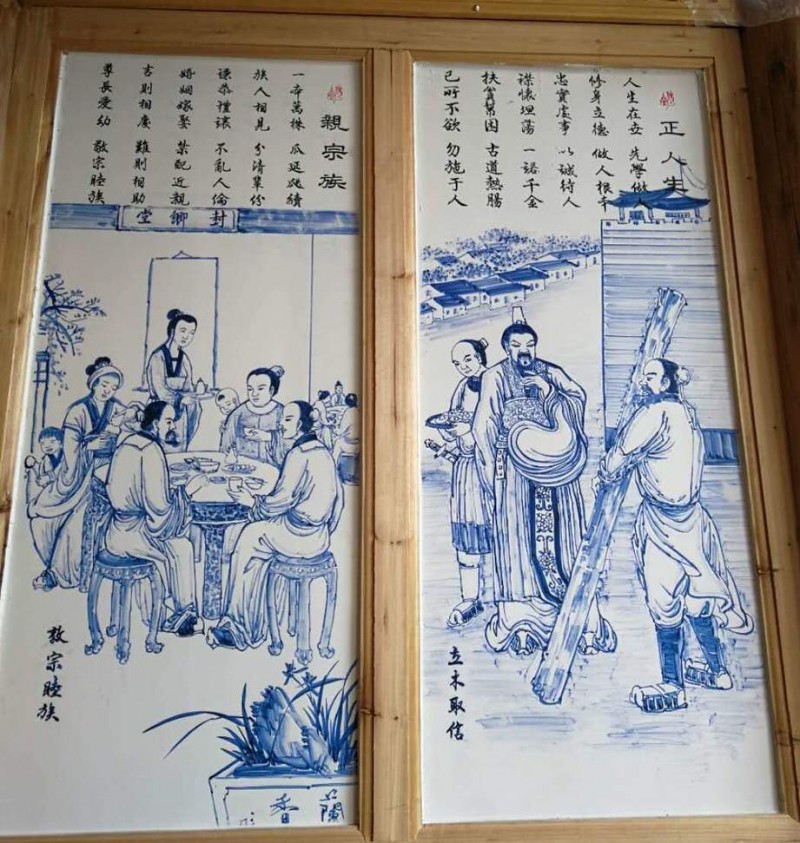 正人生
人生在立 先學做人
修身立德 做人根本
忠實處事 以誠待人
襟懷坦蕩 一諾千金
扶貧帮困 古道熱腸
己所不欲 勿施于人
立木取信
親宗族
一本萬株 瓜延瓞續
族人相見 分清輩份
謙恭禮讓 不亂人倫
婚姻嫁娶 莫配近親
吉則相慶 難則相助
尊長愛幼 敬宗睦族
封卿堂
敬宗睦族
蘭香